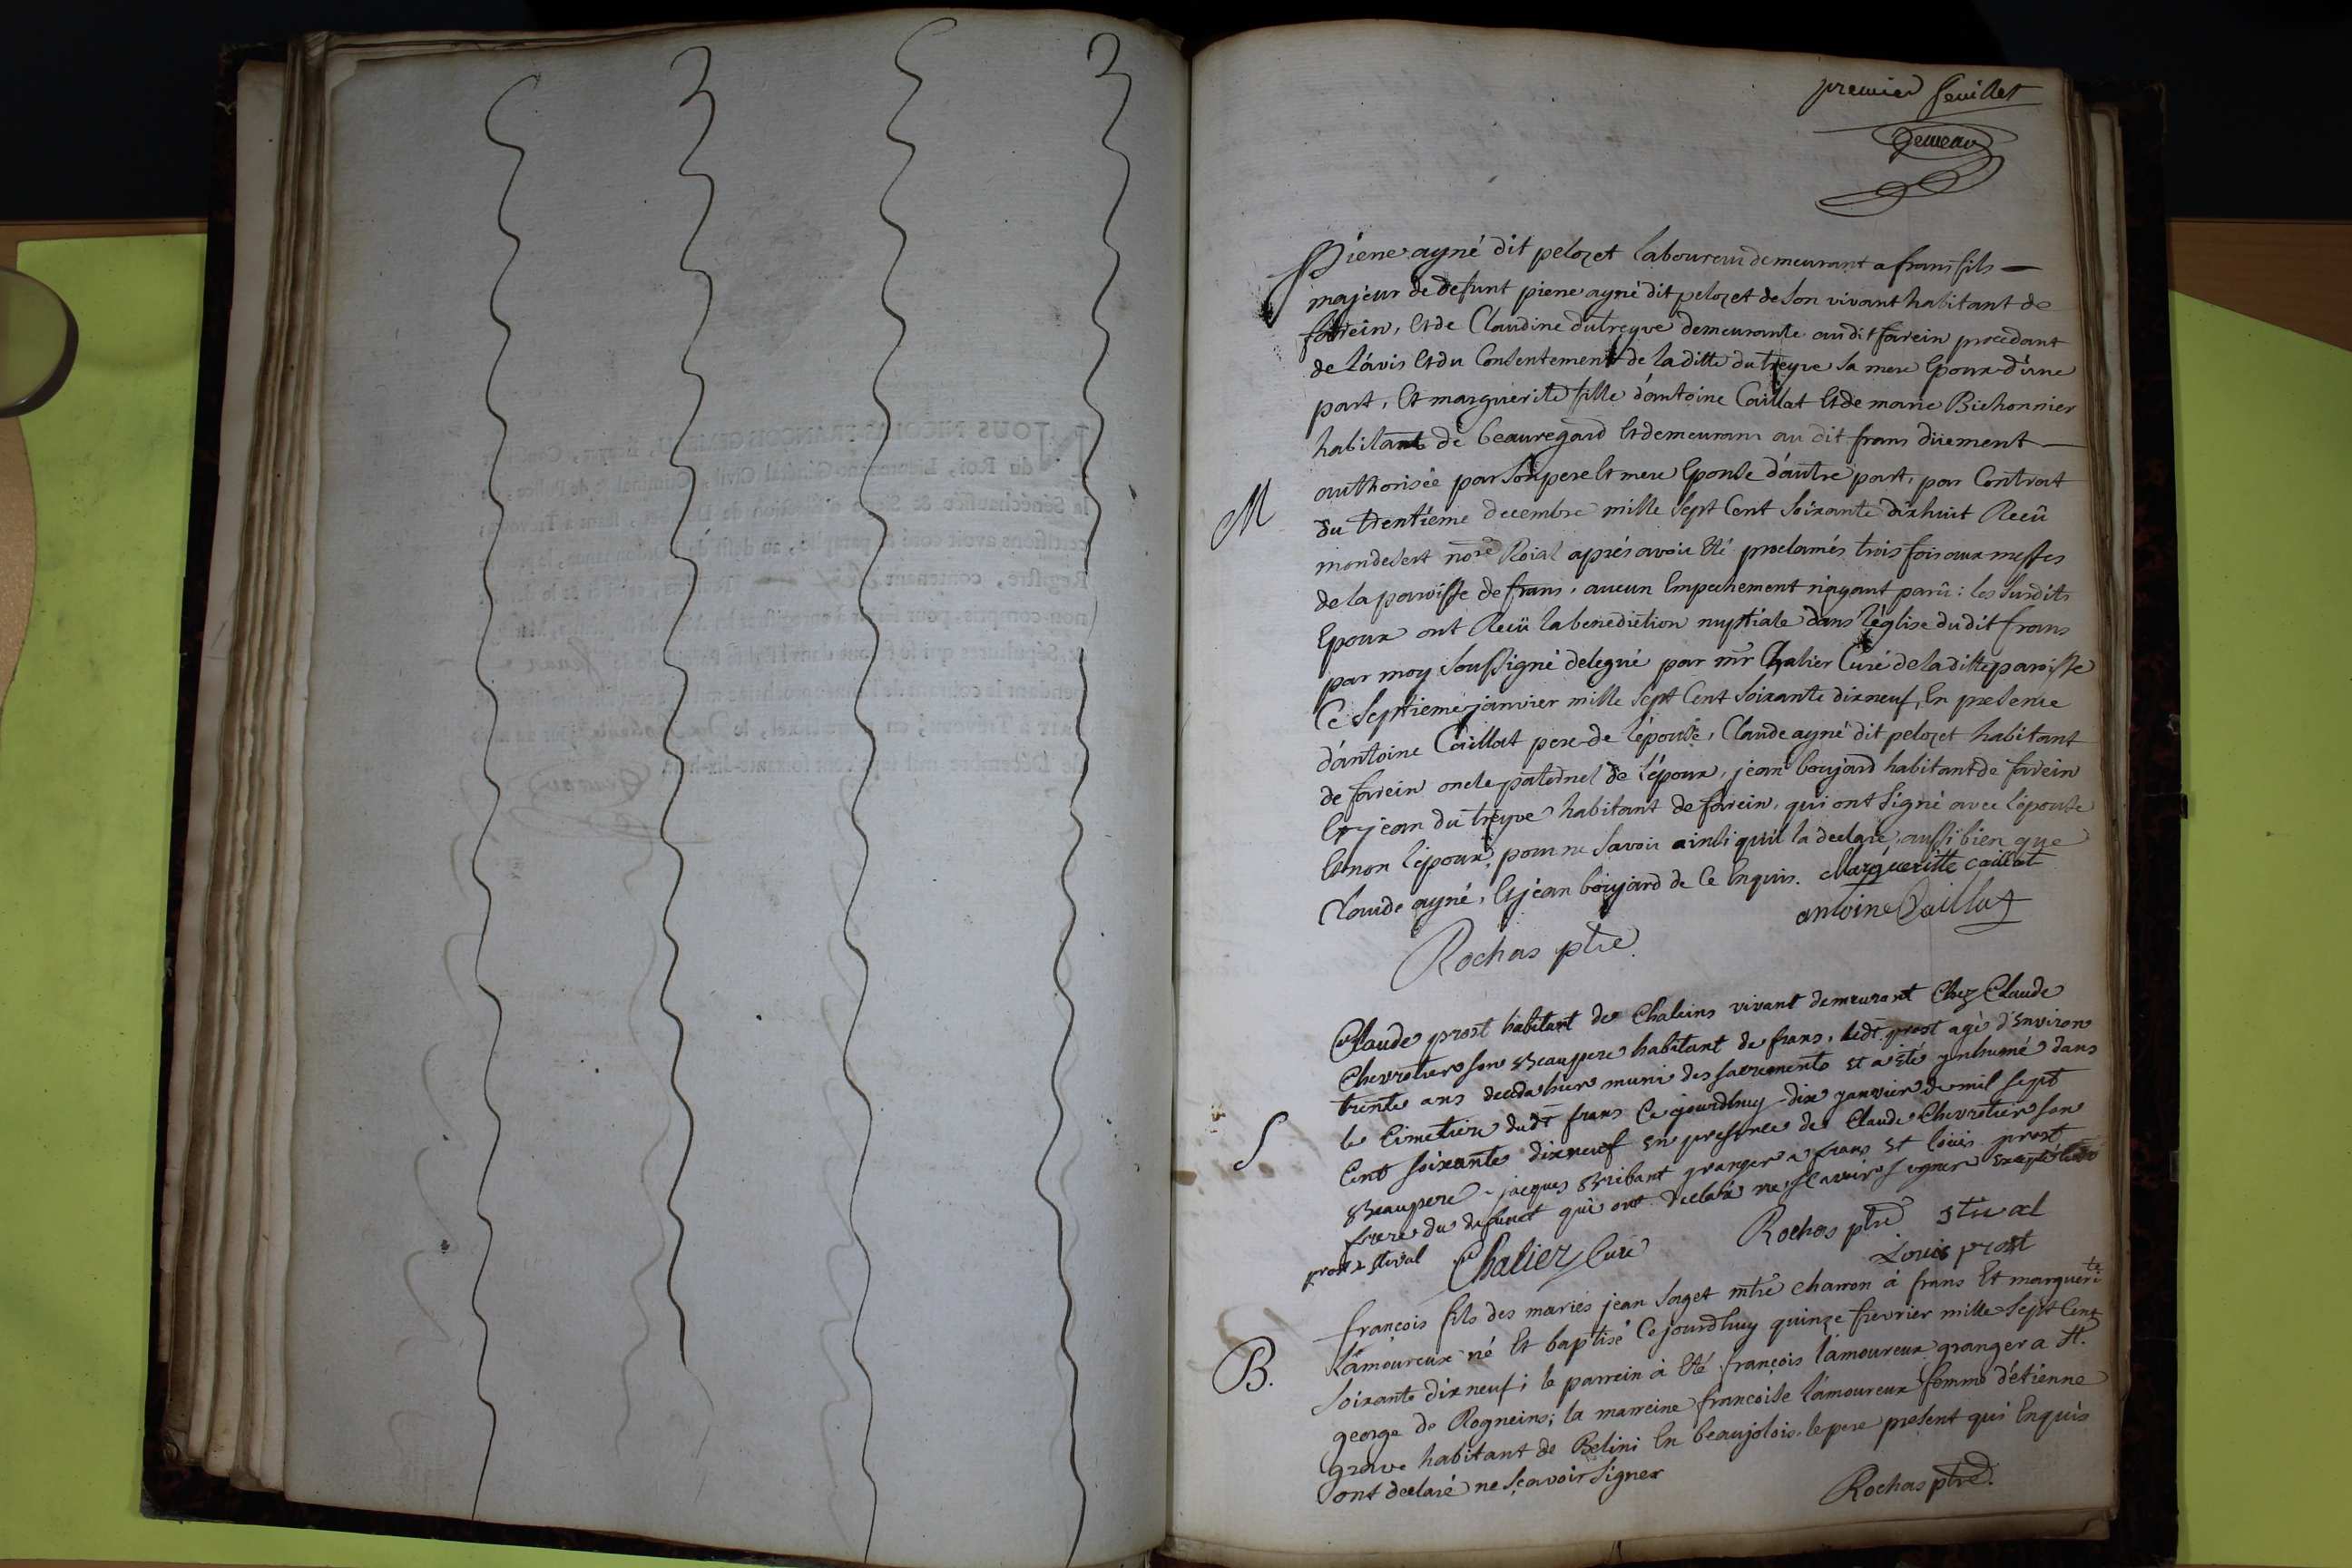 premier feuillet
Gemeau
Pierre ayné dit pelozet laboureur demeurant a frans fils
majeur de defunt pierre ayné dit pelozet de son vivant habitant de
farein, Et de Claudine dutreyve demeurante au dit farein procedant
de l'avis Et du Consentement de la ditte du treyve sa mere Epoux d'une
part, Et marguerite fille d'antoine Caillat Et de marie Bichonnier
habitant de beauregard Et demeurans au dit frans düement
authorisée par son pere Et mere Epouse d'autre part, par Contrat
M
du trentieme decembre mille sept Cent soixante dix huit Reçû
mondesert nore Roial aprés avoir Eté proclamés trois fois aux messes
de la paroisse de frans, aucun Empechement n'ayant parû : les susdits
Epoux ont Reçû la benediction nuptiale dans l'église du dit frans
par moy soussigné delegué par mr Chalier Curé de la ditte paroisse
Ce septieme janvier mille sept Cent soixante dix neuf, En presence
d'antoine Caillat pere de l'épouse, Claude ayné dit pelozet habitant
de farein oncle paternel de l'époux, jean boujard habitant de farein
Et jean du treyve habitant de farein, qui ont signé avec l'épouse
Et non l'époux, pour ne savoir ainsi qu'il la declaré, aussi bien que
Claude ayné, Et jean boujard de Ce Enquis. Margueritte caillat
antoine Caillat
Rochas ptre
Claude prost habitant de Chaleins vivant demeurant Chez Claude
Chevrotier son Beaupere habitant de frans, ledt prost agé d'Environ
trente ans deceda hier muni des sacrements Et a été ynhumé dans
le Cimetiere dudt frans Ce jourdhuy dix janvier de mil sept
S
Cent soixante dixneuf En presence de Claude Chevrotier son
Beaupere, jacques Bribant granger a frans Et loüis prost
frere du defunct qui ont declaré ne sçavoir signer Excepté
prost & stival Chalier Curé Rochas ptre stival
Louis prost
françois fils des mariés jean soget mtre charron à frans Et marguerite
l'amoureux né Et baptisé Ce jourdhuy quinze fievrier mille sept Cent
B.
soixante dix neuf ; le parrein à Eté françois l'amoureux granger a St.
george de Rogneins ; la marreine françoise l'amoureux femme d'étienne
grave habitant de Belini En beaujolois, le pere present qui Enquis
ont declaré ne sçavoir signer
Rochas ptre.